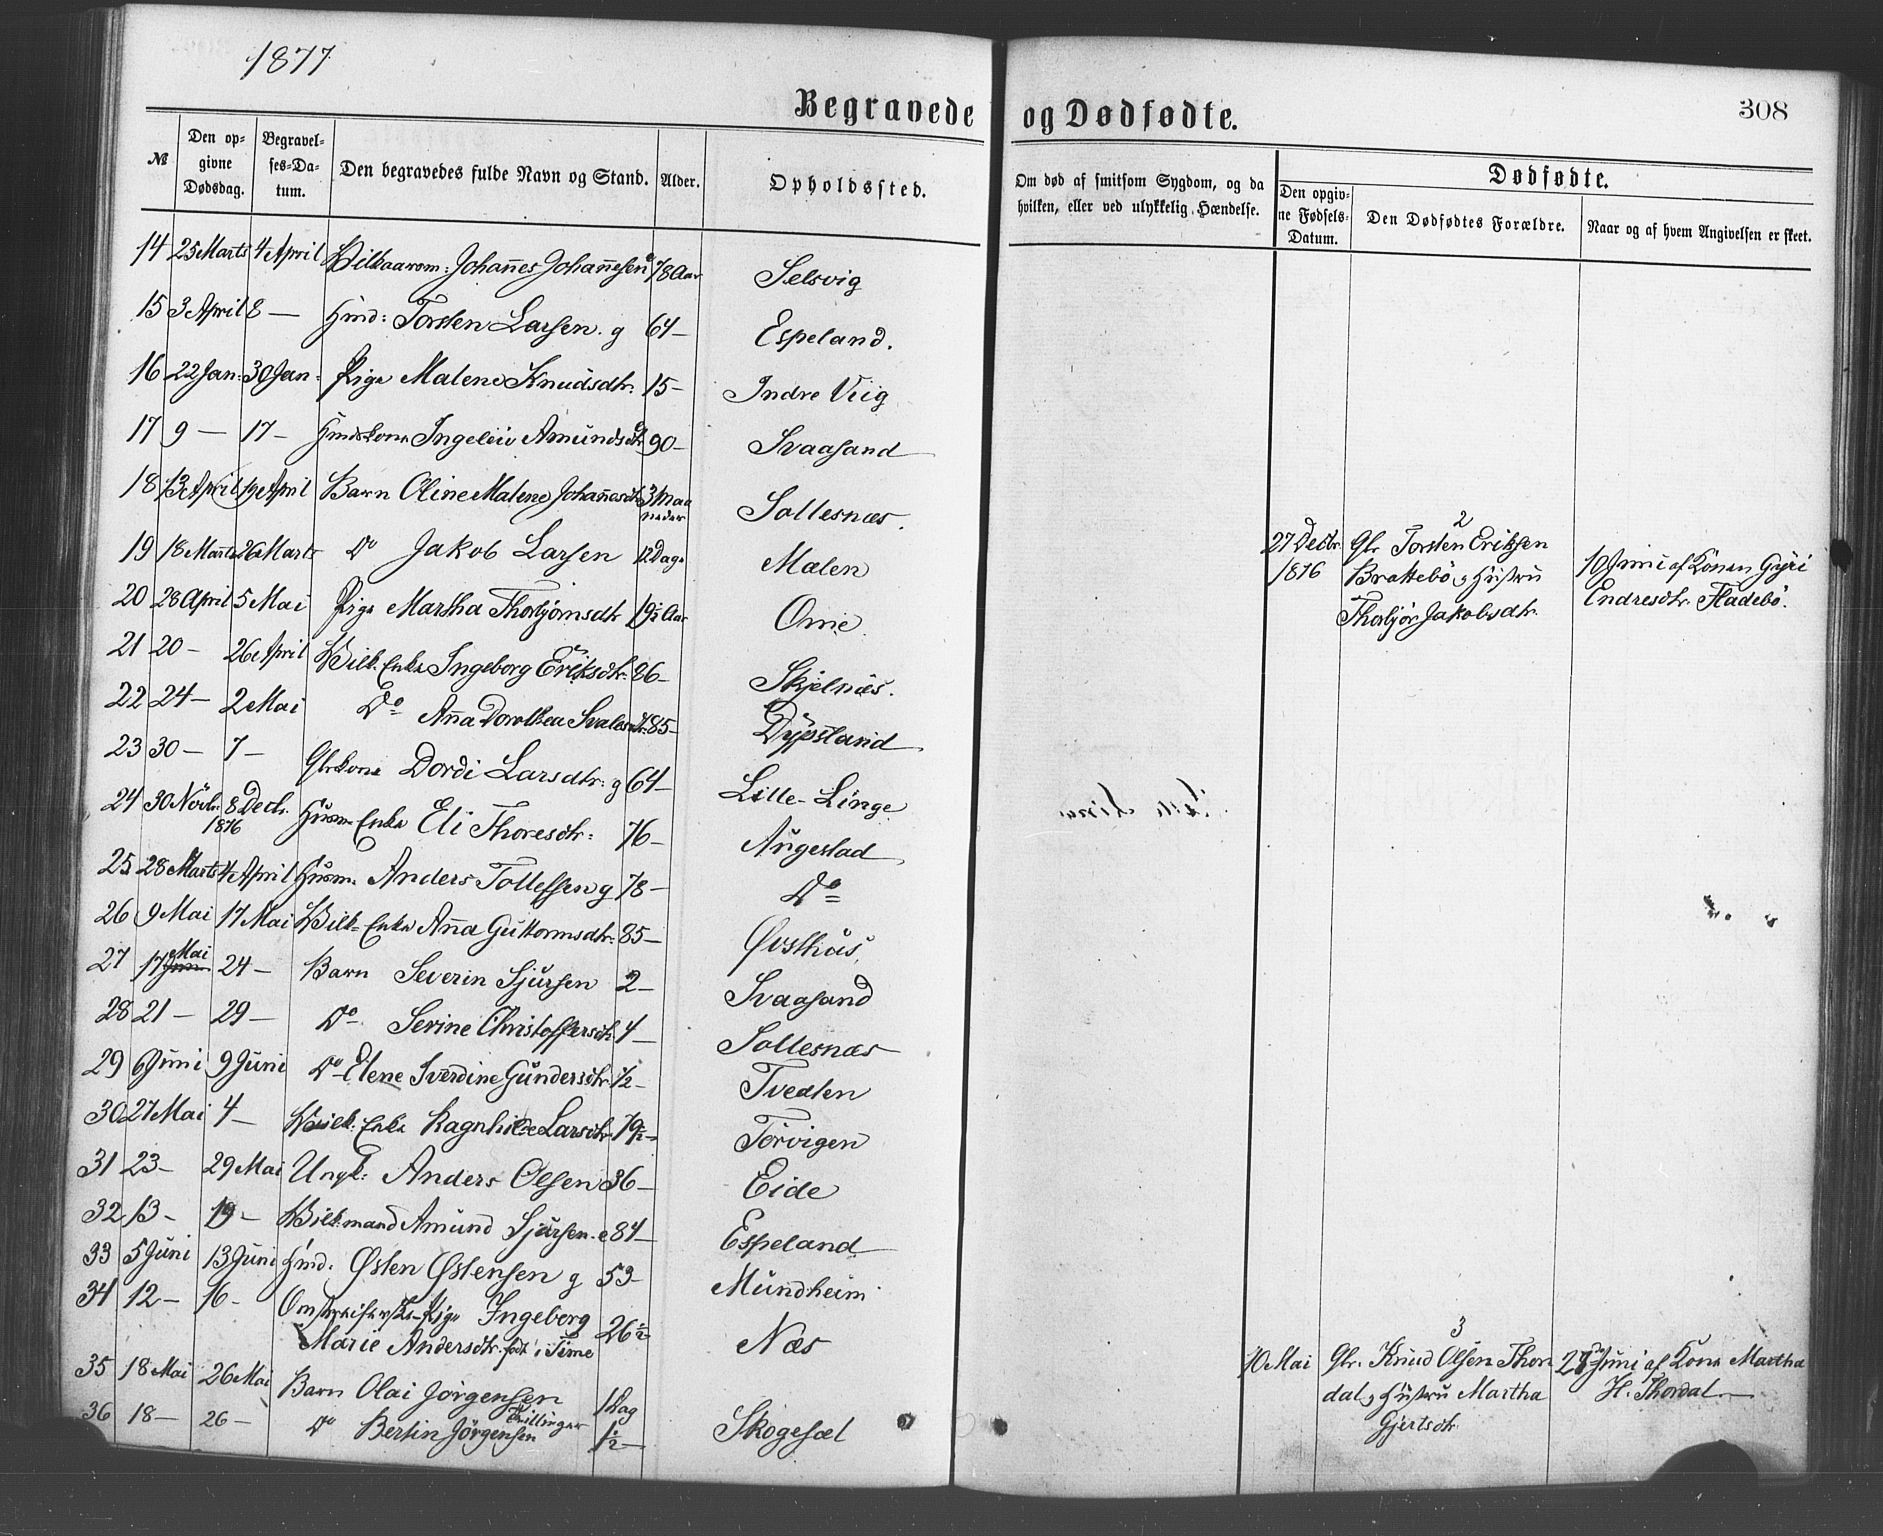 1877
Begravede og Dødfødte.
308
№ Den opgivne Dødsdag. Begravelses-Datum. Den begravedes fulde Navn og Stand. Alder. Opholdssted. Om død af smitsom Sygdom, og da hvilken, eller ved ulykkelig Hændelse. Dødfødte. Den opgivne Fødsels-Datum. Den Dødfødtes Forældre. Naar og af hvem Angivelsen er skeet.
14 25 Marts 4 April Johannes Johannesen 78 Aar Selsvig
15 3 April 8 — Hmd: Torsten Larsen. g 64 — Espeland.
16 22 Jan: 30 Jan: Pige Malene Knudsdtr. 15 — Indre Viig
17 9 — 17 — Hmdskone Ingeleiv Amundsdtr 90 — Svaasand
18 13 April 19 April Barn Oline Malene Johannesdtr 3 Maaneder Sollesnæs.
19 18 Marts 26 Marts Do Jakob Larsen 12 Dage Mælen
20 28 April 5 Mai Pige Martha Thorbjørnsdtr 19½ Aar Ome
21 20 — 26 April Vilk. Enke Ingeborg Eriksdtr. 86 — Skjelnæs.
22 24 — 2 Mai Do Anna Dorothea Svalesdtr. 85 — Dypsland
23 30 — 7 — Gbrkone Dordi Larsdtr. g 64 — Lille-Linge
24 30 Novbr. 8 Decb. 1876 Husm. Enke Eli Thoresdtr. 76 — Augestad
25 28 Marts 4 April Husm. Anders Tollefsen g 78 — Do
26 9 Mai 17 Mai Vilk. Enke Anna Guttormsdtr. 85 — Øvsthus.
27 17 Mai 24 — Barn Severin Sjursen 2 — Svaasand
28 21 — 29 — Do Serine Christoffersdtr 4 — Sollesnæs
29 6 Juni 9 Juni Do Elene Sverdine Gundersdtr ½ — Tvedten
30 27 Mai 4 — Vilk. Enke Ragnhilde Larsdtr 79½ — Torvigen
31 23 — 29 Mai Ungk: Anders Olsen 36 — Eide
32 13 — 19 — Vilkmand Amund Sjursen. e 84 — Espeland
33 5 Juni 13 Juni Hmd. Østen Østensen g 53 — Mundheim
34 12 — 16 — Omstreiferske Pige Ingeborg
Marie Andersdtr. født i Time 26½ Næs
35 18 Mai 26 Mai Barn Olai Jørgensen 1 Dag
36 18 — 26 — Do Bertin Jørgensen Tvillinger 1½ — Skogesæl
2
27 Decbr. 1876 Gbr Torsten Eriksen
Brattebø og Hustru
Thorbjør Jakobsdtr.
10 Juni af Konen Gyri
Endresdtr. Fladebø.
3
10 Mai Gbr. Knud Olsen Thor
dal og Hustru Martha
Gjertsdtr.
28de Juni af Kone Martha
H. Thordal